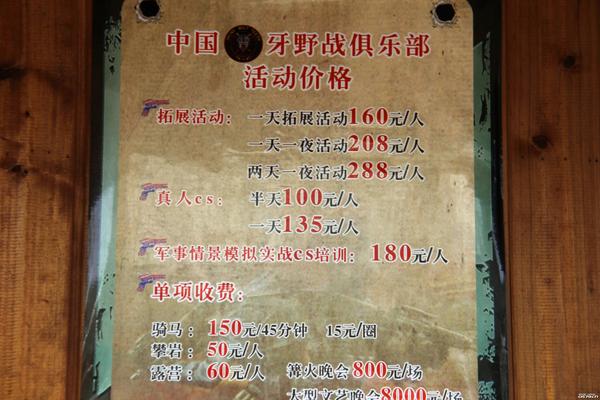 中国 牙野战俱乐部
活动价格
拓展活动： 一天拓展活动160元/人
一天一夜活动208元/人
两天一夜活动288元/人
真人cs： 半天100元/人
一天135元/人
军事情景模拟实战cs培训： 180元/人
单项收费：
骑马： 150元/45分钟 15元/圈
攀岩： 50元/人
露营： 60元/人 篝火晚会800元/场
大型文艺晚会8000元/场